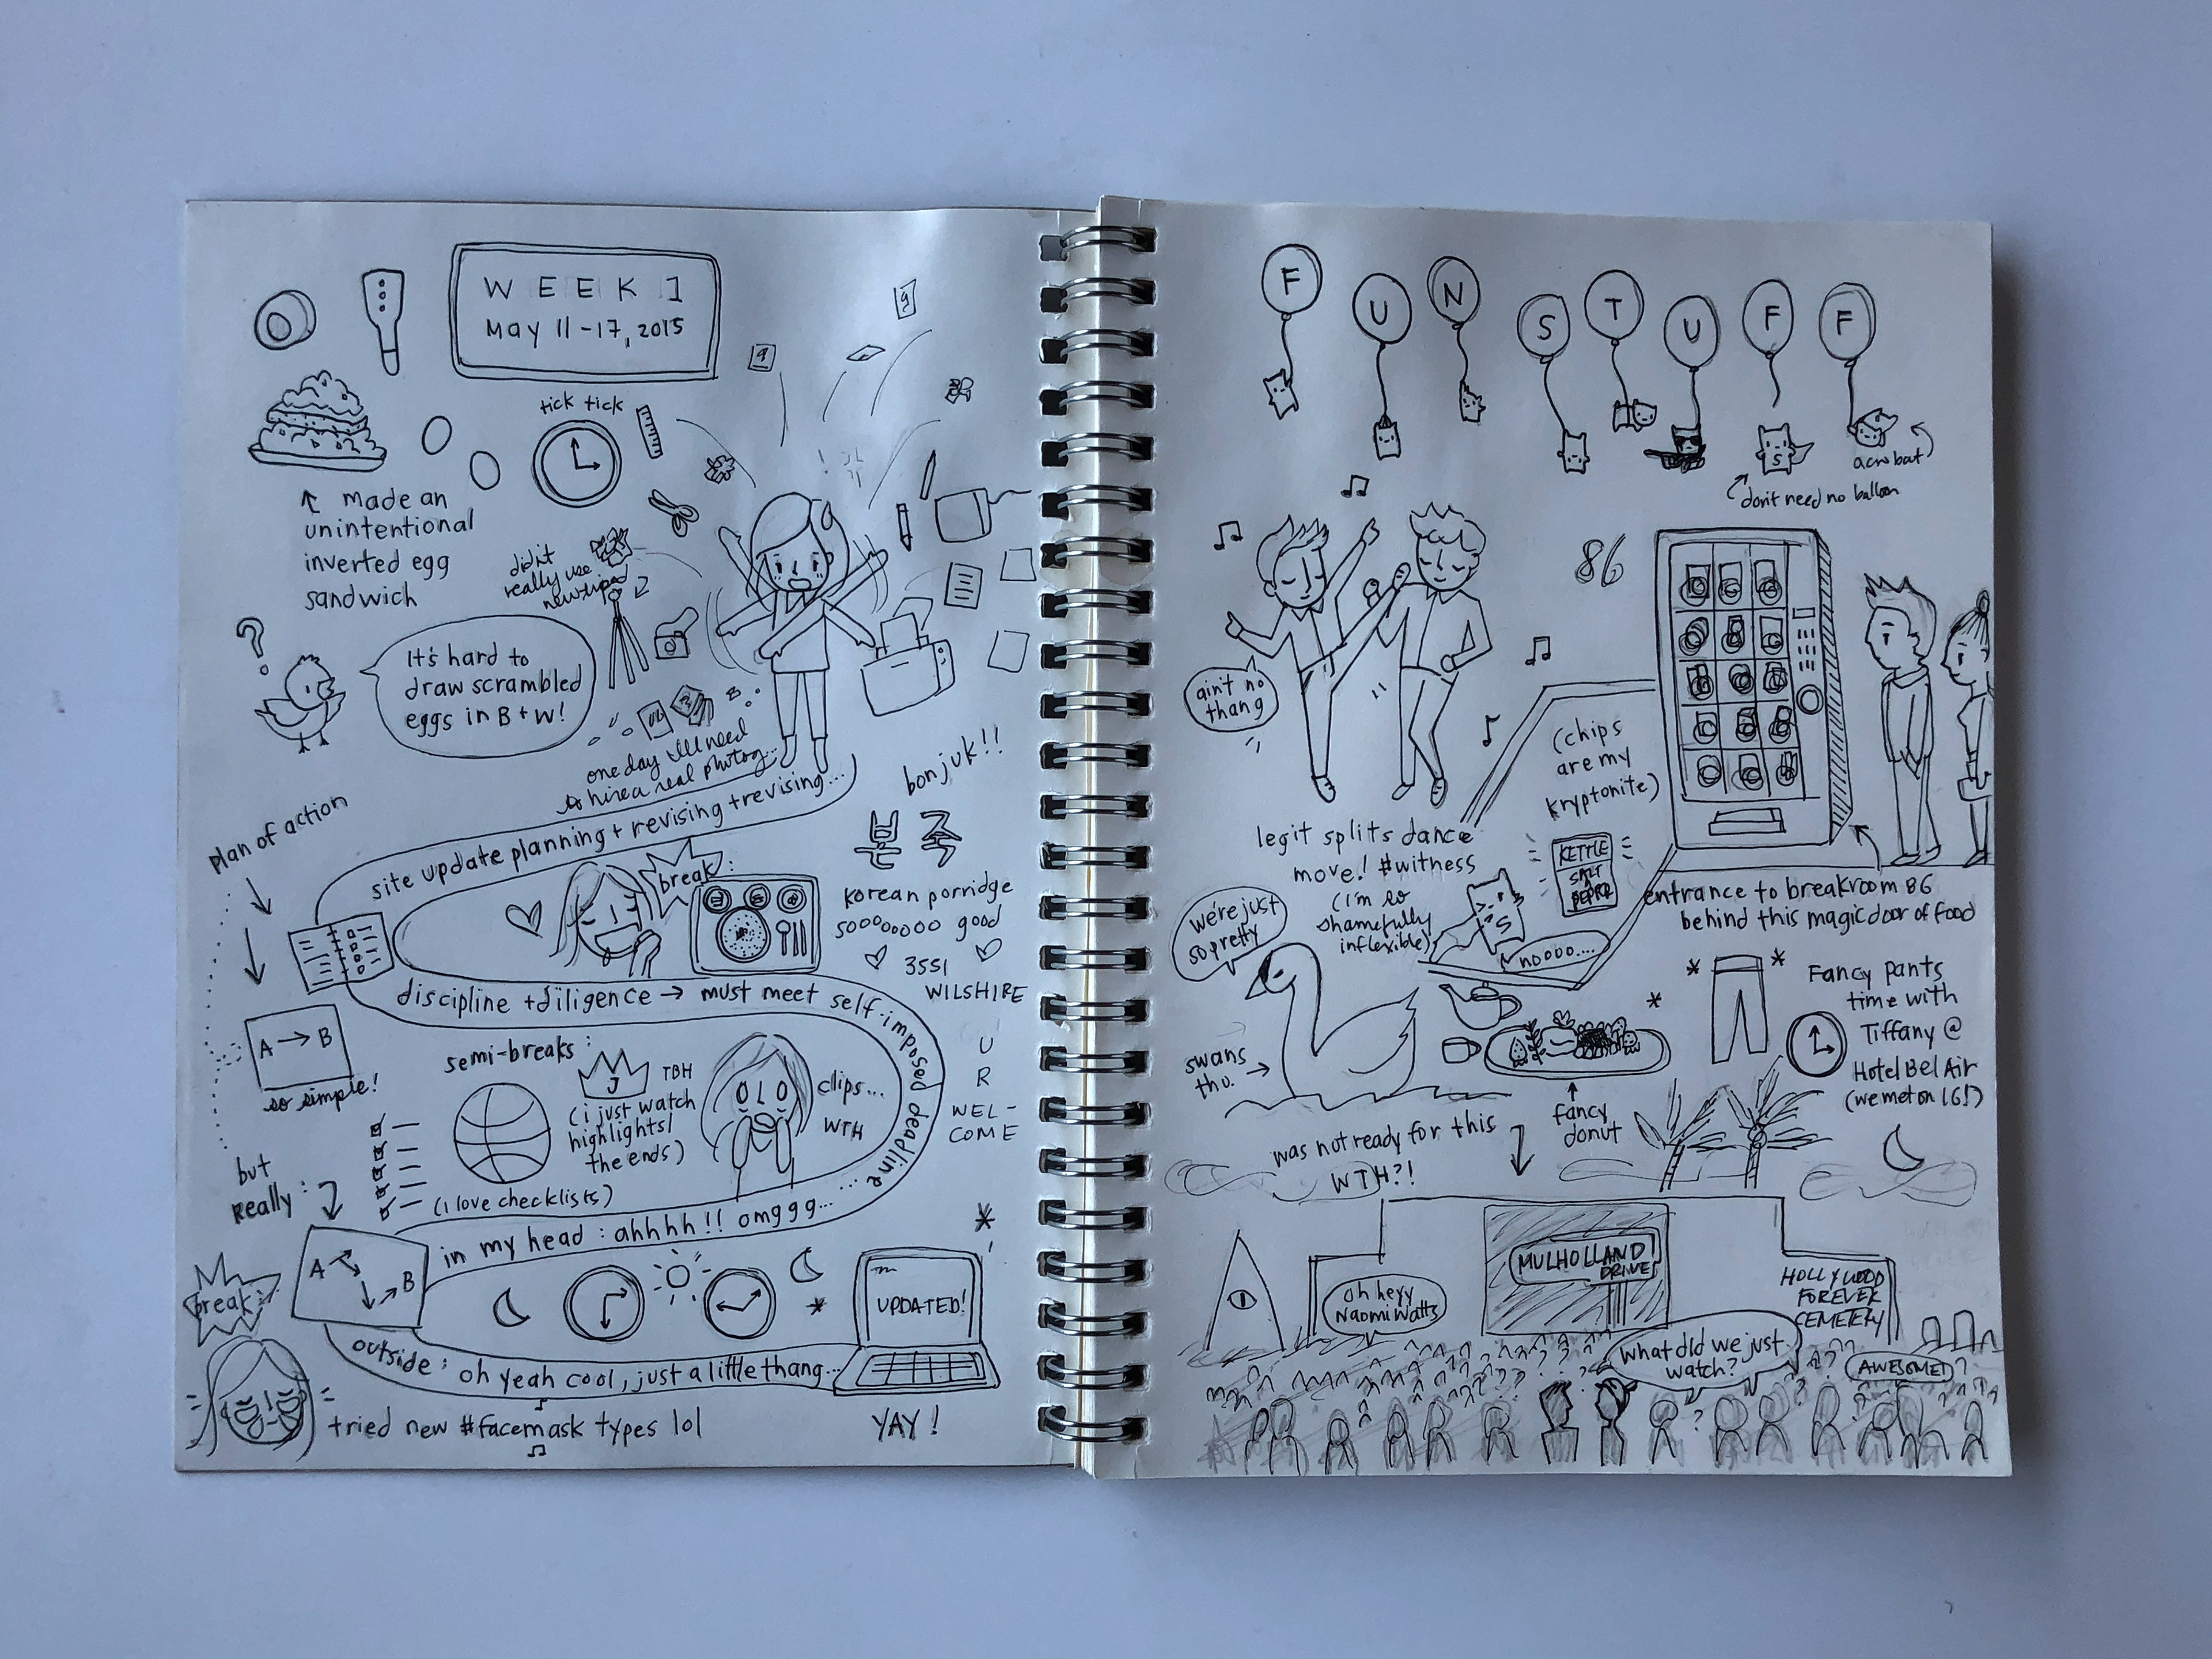 WEEK 1
May 11-17, 2015
tick tick
↑ made an
unintentional
inverted egg
sandwich
didn't
really use
new tripod
?
It's hard to
draw scrambled
eggs in B+W!
one day I'll need
to hire a real photog...
plan of action
site update planning + revising + revising...
break:
bonjuk!!
본죽
korean porridge
soooooooo good
3551
WILSHIRE
U
R
WEL-
COME
discipline + diligence → must meet self-imposed deadline......
A → B
so simple!
semi-breaks:
J
TBH
(i just watch
highlights/
the ends)
clips...
WTH
(i love checklists)
but
really:
A
B
in my head: ahhhh!! omggg...
UPDATED!
outside: oh yeah cool, just a little thang...
YAY!
break:
tried new #facemask types lol
FUN STUFF
acrobat
S
don't need no balloon
86
ain't no
thang
legit splits dance
move! #witness
(i'm so
shamefully
inflexible)
(chips
are my
kryptonite)
KETTLE
SALT
&
PEPPER
S
noooo....
entrance to breakroom 86
behind this magic door of food
we're just
so pretty
swans
tho. →
fancy
donut
Fancy pants
time with
Tiffany @
Hotel Bel Air
(we met on IG!)
was not ready for this
WTH?!
MULHOLLAND
DRIVE
oh heyy
Naomi Watts
HOLLYWOOD
FOREVER
CEMETERY
What did we just
watch?
AWESOME!